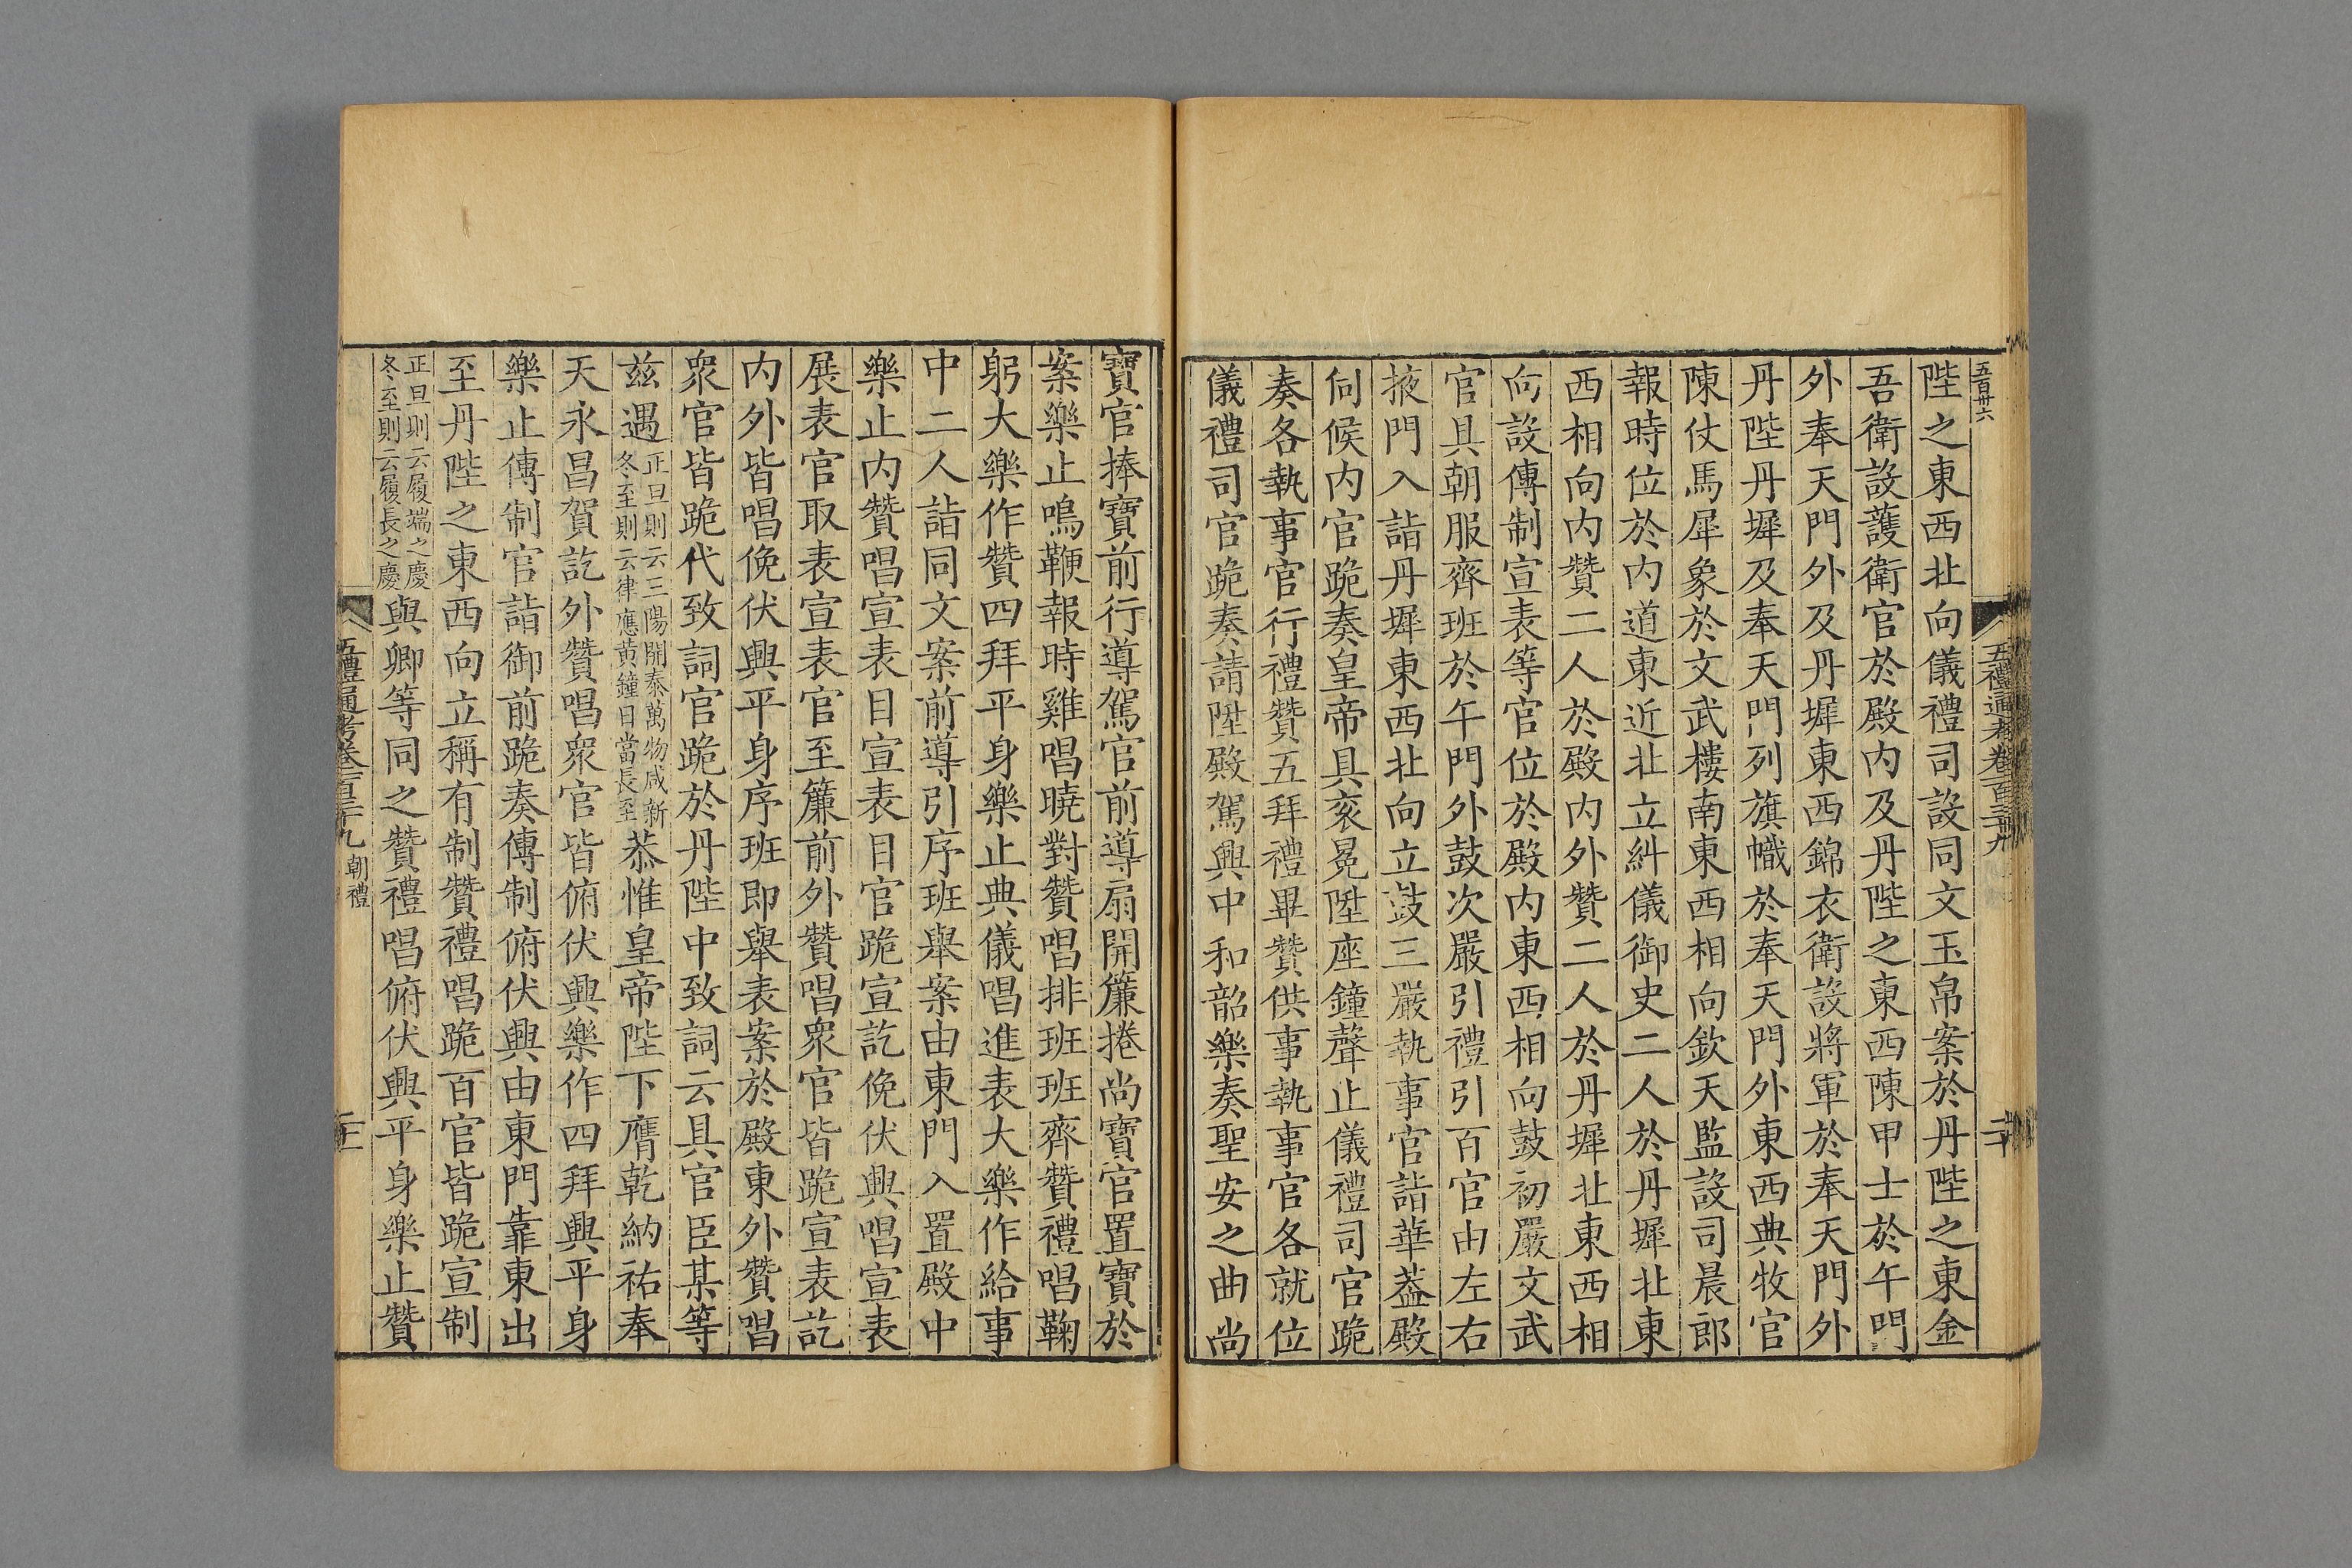 五百卅六
五禮通考卷一百三十九
二十
陛之東西北向儀禮司設同文玉帛案於丹陛之東金
吾衛設護衛官於殿內及丹陛之東西陳甲士於午門
外奉天門外及丹墀東西錦衣衛設將軍於奉天門外
丹陛丹墀及奉天門列旗幟於奉天門外東西典牧官
陳仗馬犀象於文武樓南東西相向欽天監設司晨郎
報時位於內道東近北立糾儀御史二人於丹墀北東
西相向內贊二人於殿內外贊二人於丹墀北東西相
向設傳制宣表等官位於殿內東西相向鼓初嚴文武
官具朝服齊班於午門外鼓次嚴引禮引百官由左右
掖門入詣丹墀東西北向立鼓三嚴執事官詣華蓋殿
伺候內官跪奏皇帝具袞冕陞座鐘聲止儀禮司官跪
奏各執事官行禮贊五拜禮畢贊供事執事官各就位
儀禮司官跪奏請陞殿駕興中和韶樂奏聖安之曲尚
寶官捧寶前行導駕官前導扇開簾捲尚寶官置寶於
案樂止鳴鞭報時雞唱曉對贊唱排班班齊贊禮唱鞠
躬大樂作贊四拜平身樂止典儀唱進表大樂作給事
中二人詣同文案前導引序班舉案由東門入置殿中
樂止內贊唱宣表目宣表目官跪宣訖俛伏興唱宣表
展表官取表宣表官至簾前外贊唱眾官皆跪宣表訖
內外皆唱俛伏興平身序班即舉表案於殿東外贊唱
眾官皆跪代致詞官跪於丹陛中致詞云具官臣某等
茲遇正旦則云三陽開泰萬物咸新冬至則云律應黃鐘日當長至恭惟皇帝陛下膺乾納祐奉
天永昌賀訖外贊唱眾官皆俯伏興樂作四拜興平身
樂止傳制官詣御前跪奏傳制俯伏興由東門靠東出
至丹陛之東西向立稱有制贊禮唱跪百官皆跪宣制
正旦則云履端之慶冬至則云履長之慶與卿等同之贊禮唱俯伏興平身樂止贊
五禮通考卷一百三十九 朝禮